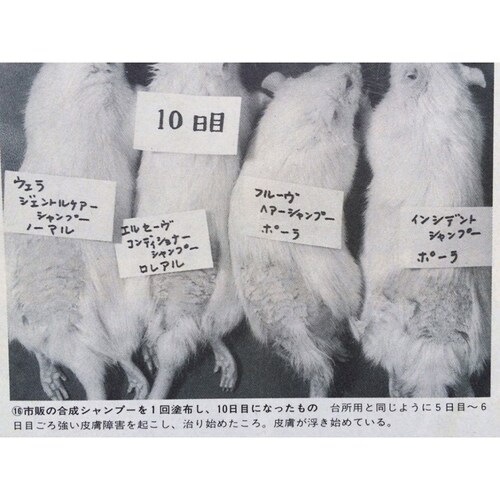 10日目
ウェラ
ジェントルケアー
シャンプー
ノーアル
エルセーヴ
コンディショナー
シャンプー
ロレアル
フルーヴ
ヘアーシャンプー
ポーラ
インシデント
シャンプー
ポーラ
⑯市販の合成シャンプーを1回塗布し、10日目になったもの　台所用と同じように5日目〜6
日目ごろ強い皮膚障害を起こし、治り始めたころ。皮膚が浮き始めている。